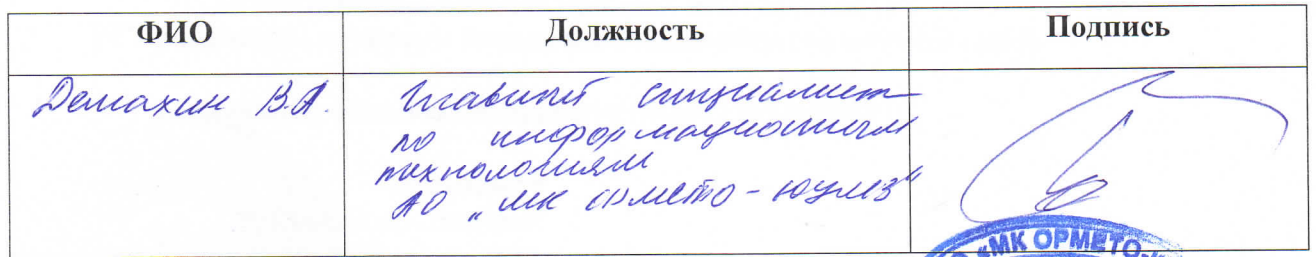 ФИО Должность Подпись
Демахин В.А. Главный специалист
по информационным
технологиям
АО „МК ОРМЕТО-ЮУМЗ"
«МК ОРМЕТО-